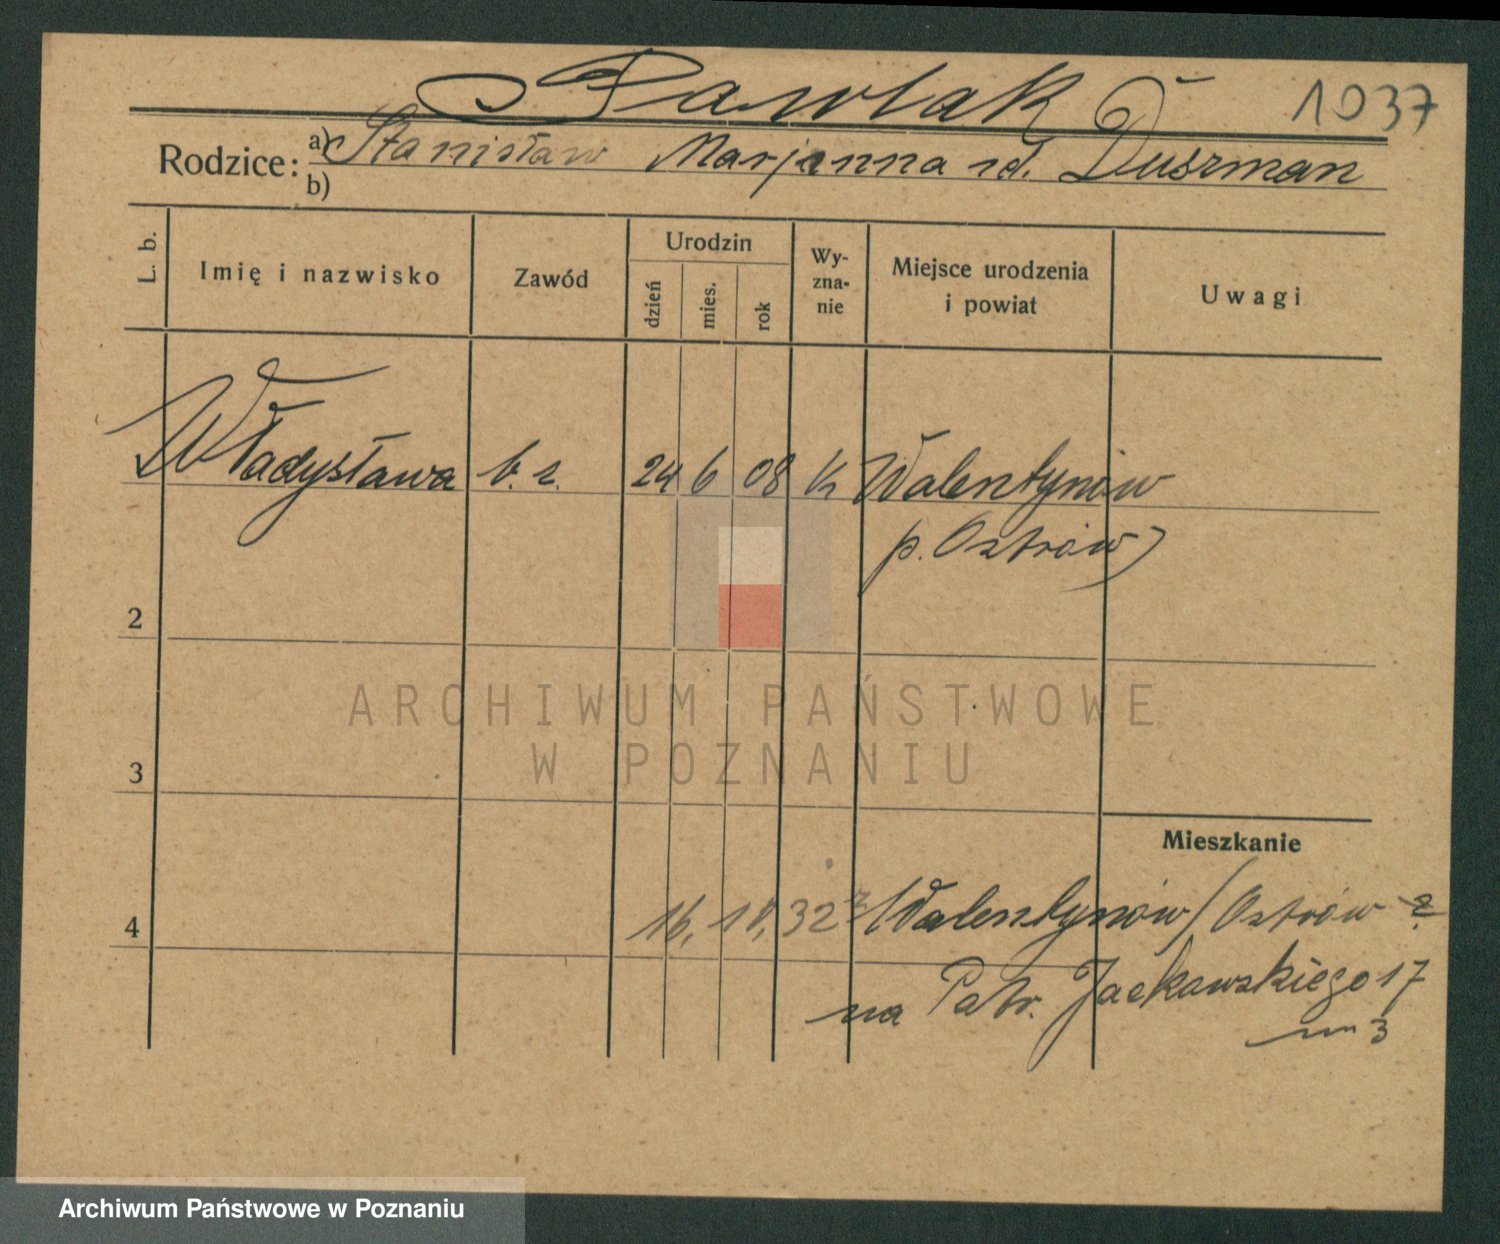 Pawlak 1037
Rodzice: a) Stanisław Marjanna rd. Duszman
b)
L. b. Imię i nazwisko Zawód Urodzin dzień mies. rok Wy-zna-nie Miejsce urodzenia i powiat Uwagi
Władysława b. z. 24 6 08 K Walentynów
p. Ostrów
2
3
Mieszkanie
4 16, 10, 32 z Walentynów/Ostrów
na Patr. Jackowskiego 17
m 3
ARCHIWUM PAŃSTWOWE
W POZNANIU
Archiwum Państwowe w Poznaniu